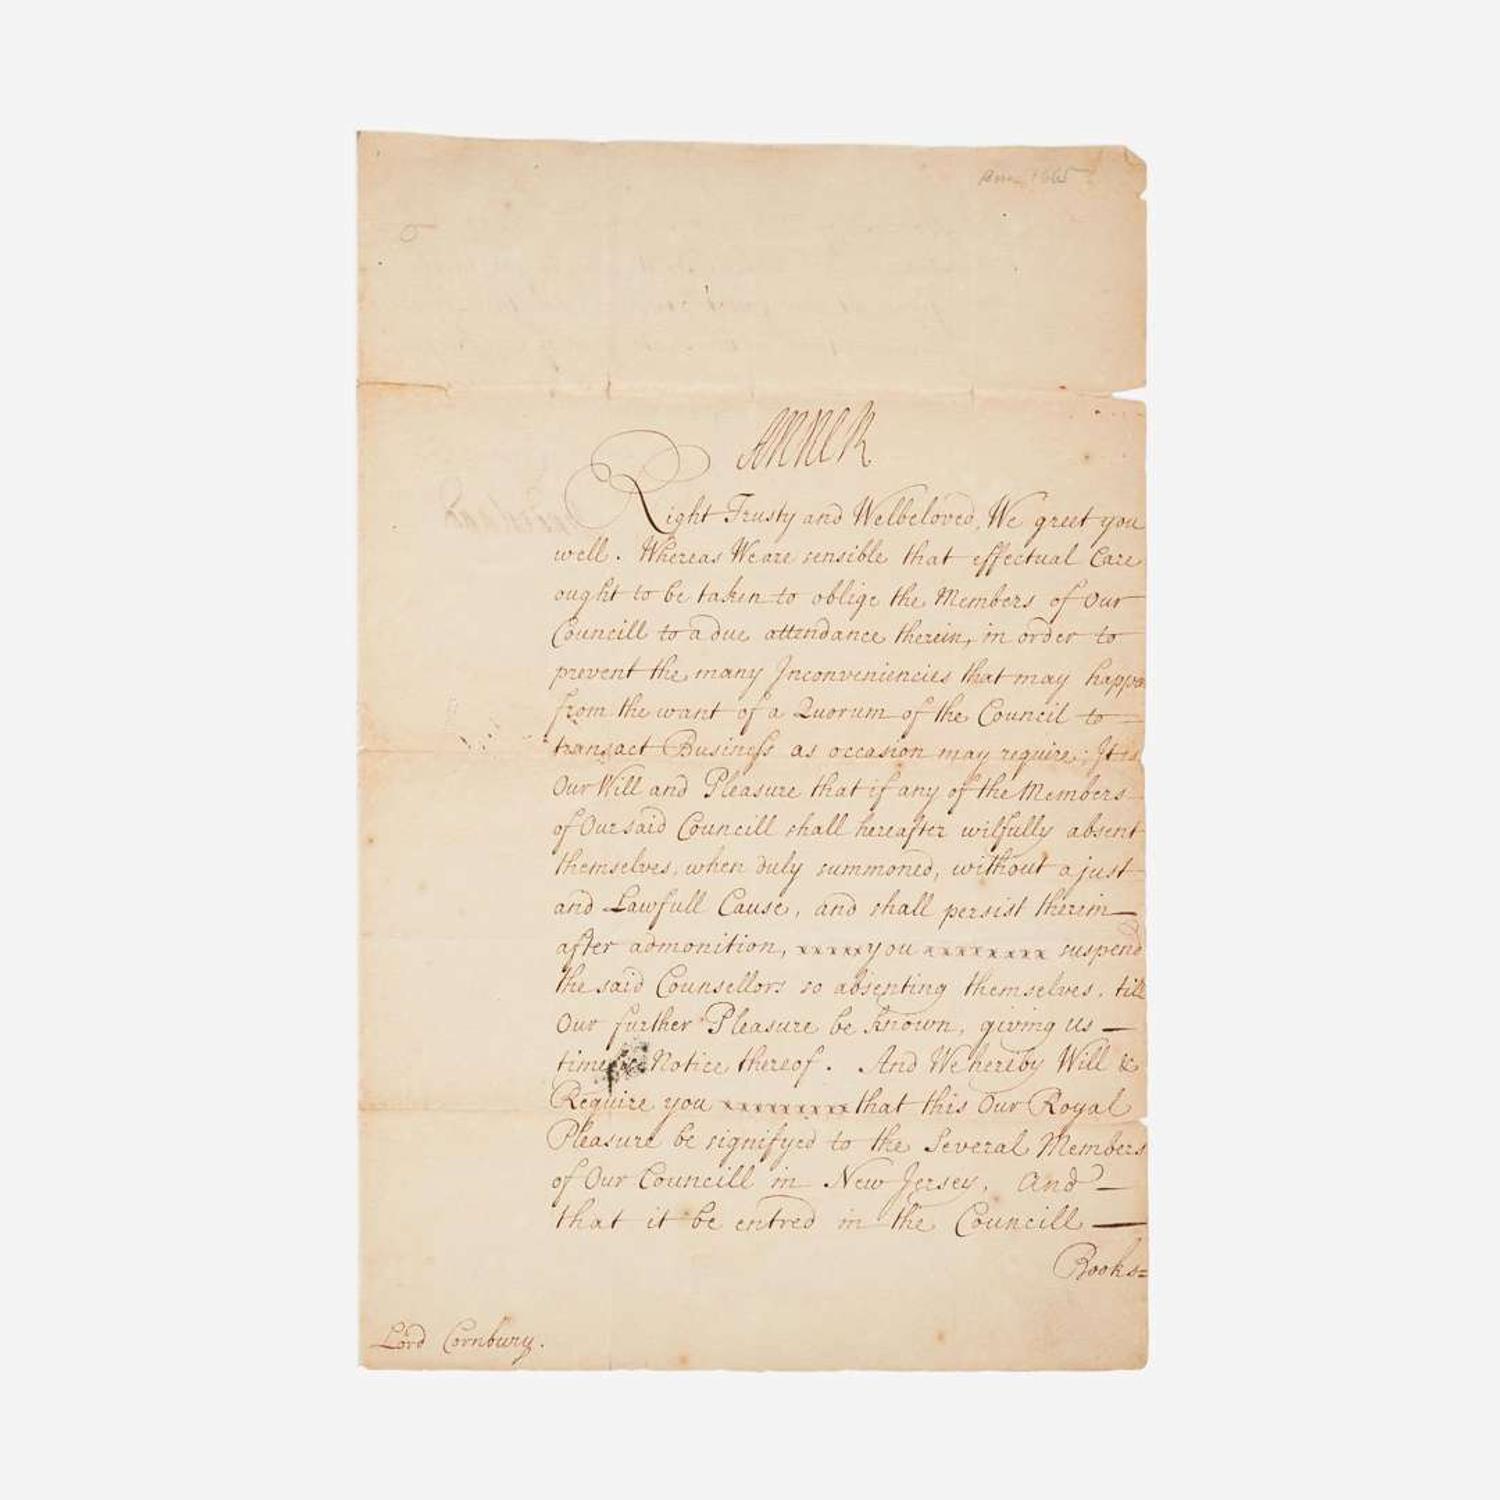 Anne R
Right Trusty and Welbeloved, We greet you
well. Whereas We are sensible that effectual Care
ought to be taken to oblige the Members of Our
Councill to a due attendance therein, in order to
prevent the many Inconveniencies that may happen
from the want of a Quorum of the Council to
transact Business as occasion may require; It is
Our Will and Pleasure that if any of the Members
of Our said Councill shall hereafter wilfully absent
themselves, when duly summoned, without a just
and Lawfull Cause, and shall persist therein
after admonition, xxxxx you xxxxxxxx suspend
the said Counsellors so absenting themselves, till
Our further Pleasure be known, giving us
Notice thereof. And We hereby Will &
Require you xxxxxxxxx that this Our Royal
Pleasure be signifyed to the Several Members
of Our Councill in New Jersey, And
that it be entred in the Councill
Books=
Lord Cornbury.